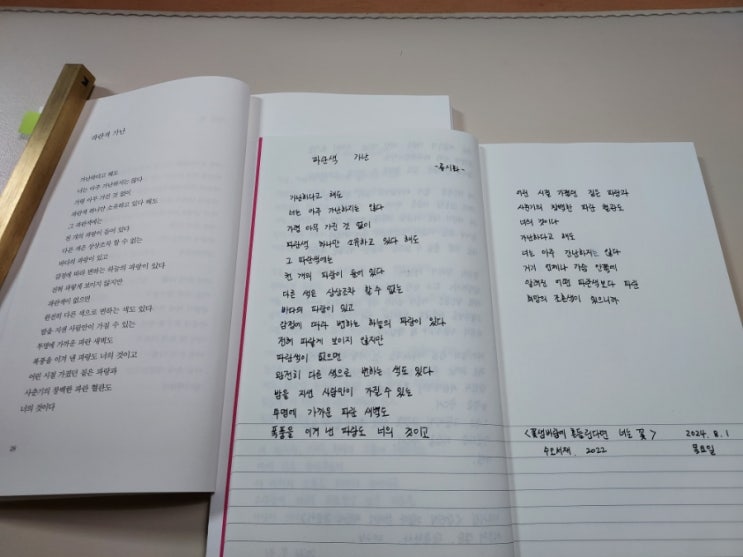 파란색 가난
가난하다고 해도
너는 아주 가난하지는 않다
가령 아무 가진 것 없이
파란색 하나만 소유하고 있다 해도
그 파란색에는
천 개의 파랑이 들어 있다
다른 색은 상상조차 할 수 없는
바다의 파랑이 있고
감정에 따라 변하는 하늘의 파랑이 있다
전혀 파랗게 보이지 않지만
파란색이 없으면
완전히 다른 색으로 변하는 색도 있다
밤을 지샌 사람만이 가질 수 있는
투명에 가까운 파란 새벽도
폭풍을 이겨 낸 파랑도 너의 것이고
어린 시절 가졌던 짙은 파랑과
사춘기의 창백한 파란 혈관도
너의 것이다
28
파란색 가난
-류시화-
가난하다고 해도
너는 아주 가난하지는 않다
가령 아무 가진 것 없이
파란색 하나만 소유하고 있다 해도
그 파란색에는
천 개의 파랑이 들어 있다
다른 색은 상상조차 할 수 없는
바다의 파랑이 있고
감정에 따라 변하는 하늘의 파랑이 있다
전혀 파랗게 보이지 않지만
파란색이 없으면
완전히 다른 색으로 변하는 색도 있다
밤을 지샌 사람만이 가질 수 있는
투명에 가까운 파란 새벽도
폭풍을 이겨 낸 파랑도 너의 것이고
어린 시절 가졌던 짙은 파랑과
사춘기의 창백한 파란 혈관도
너의 것이다
가난하다고 해도
너는 아주 가난하지는 않다
거기 언제나 가슴 안쪽에
알려진 어떤 파란색보다 파란
희망의 조흔색이 있으니까
<꽃샘바람에 흔들린다면 너는 꽃> 2024. 8. 1
수오서재, 2022 목요일